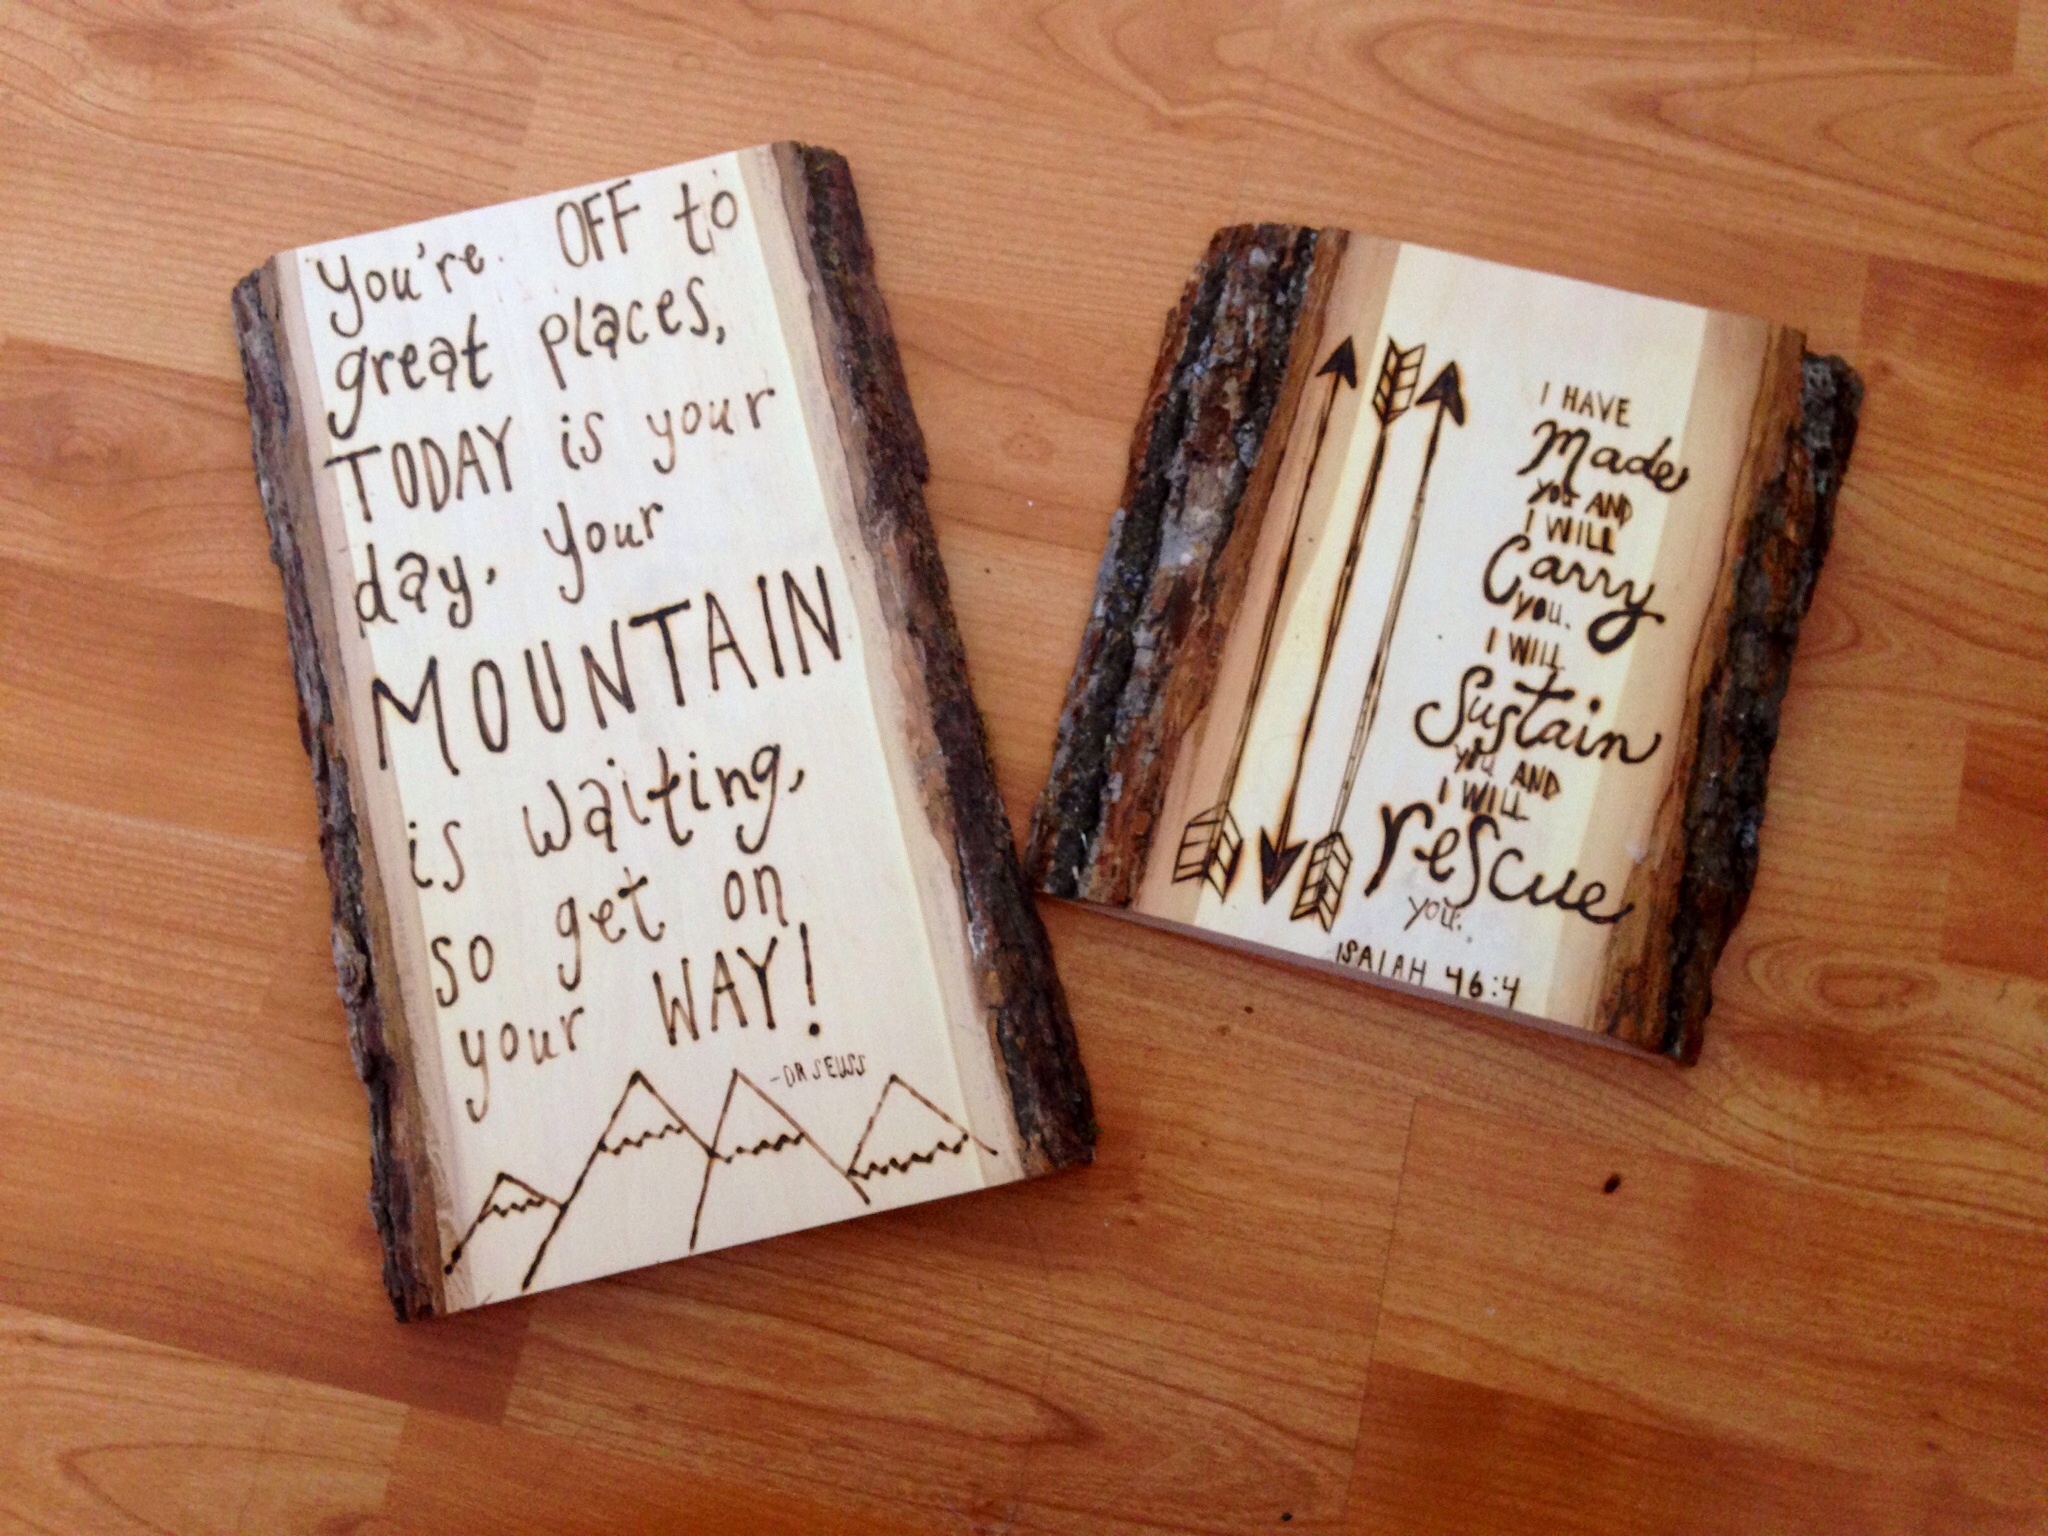 you're OFF to
great places,
TODAY is your
day. your
MOUNTAIN
is waiting,
so get on
your WAY!
-DR SEUSS
I HAVE
Made
you AND
I WILL
Carry
you.
I WILL
Sustain
you AND
I WILL
rescue
you.
ISAIAH 46:4